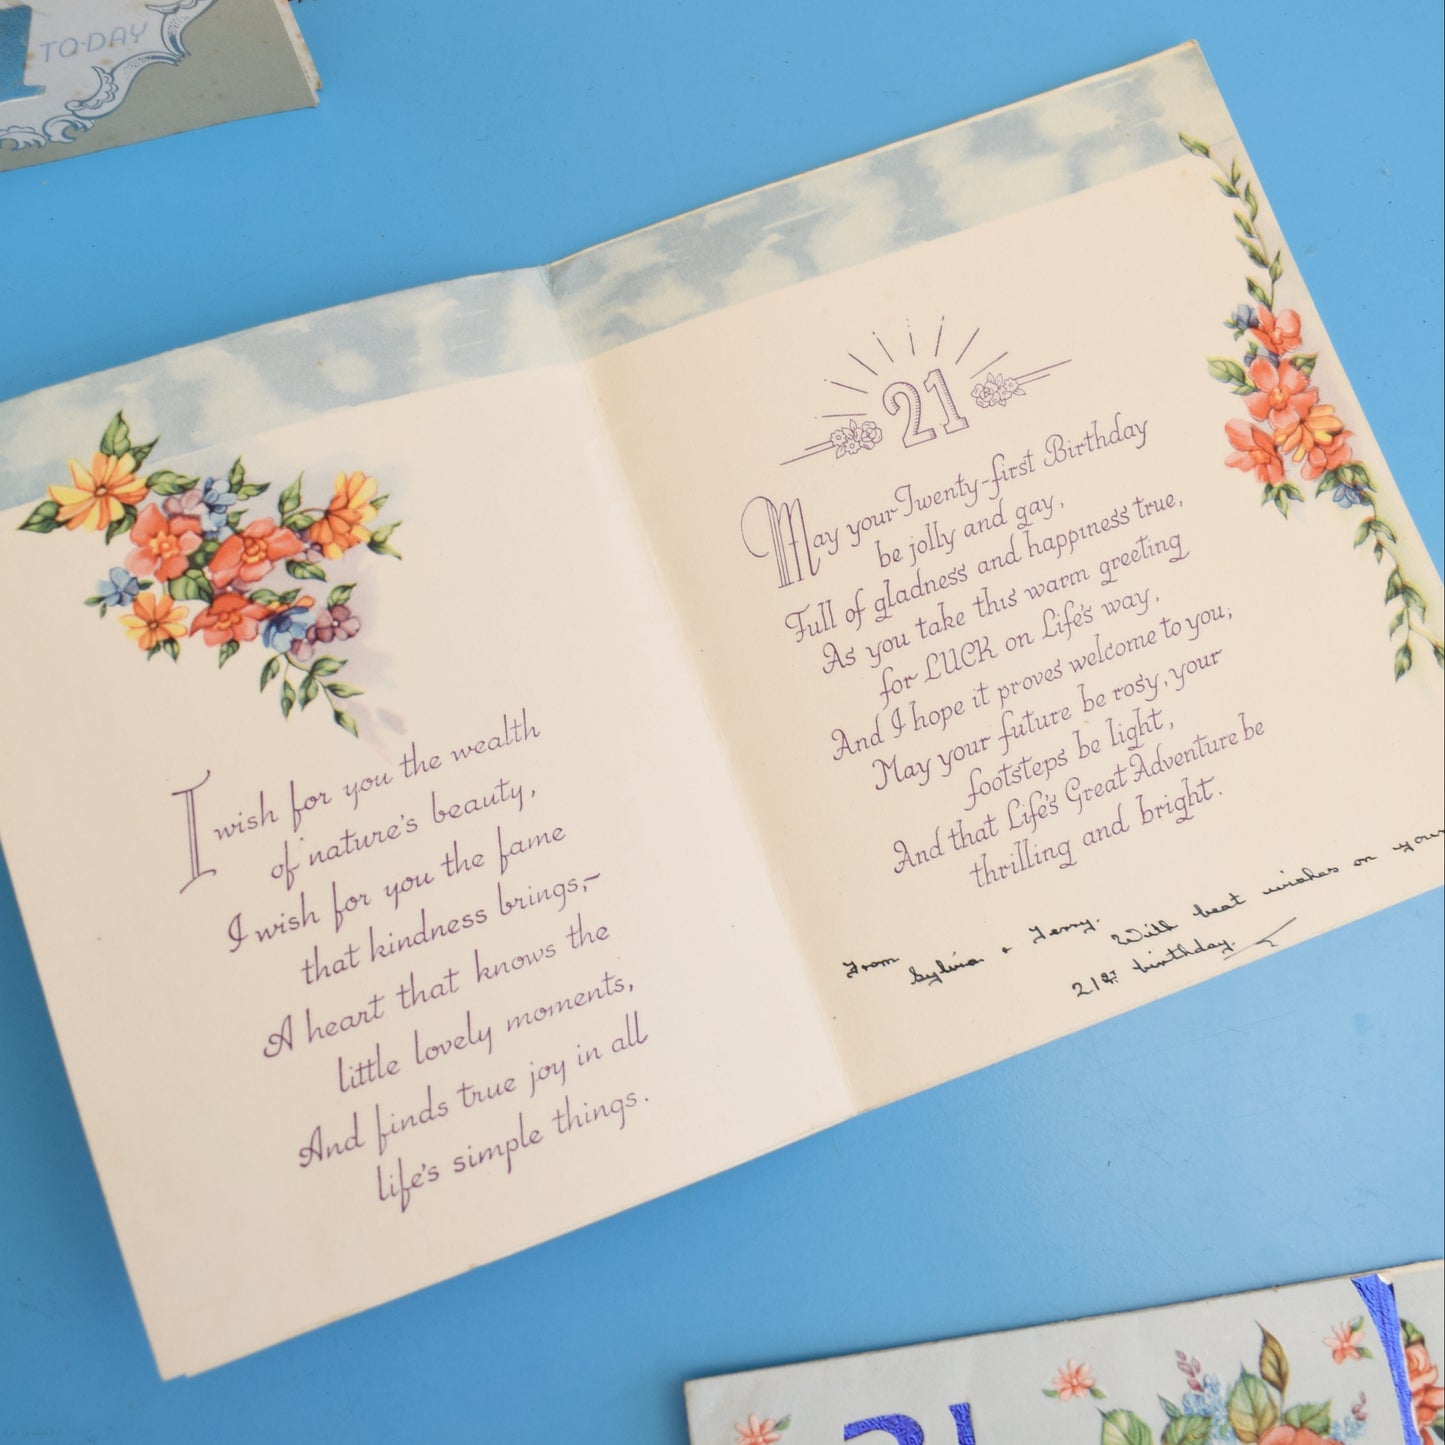 TO-DAY
I wish for you the wealth
of nature's beauty,
I wish for you the fame
that kindness brings;-
A heart that knows the
little lovely moments,
And finds true joy in all
life's simple things.
21
May your Twenty-first Birthday
be jolly and gay,
Full of gladness and happiness true,
As you take this warm greeting
for LUCK on Life's way,
And I hope it proves welcome to you;
May your future be rosy, your
footsteps be light,
And that Life's Great Adventure be
thrilling and bright.
From
Sylvia & Terry. With best wishes on your
21st birthday.
21